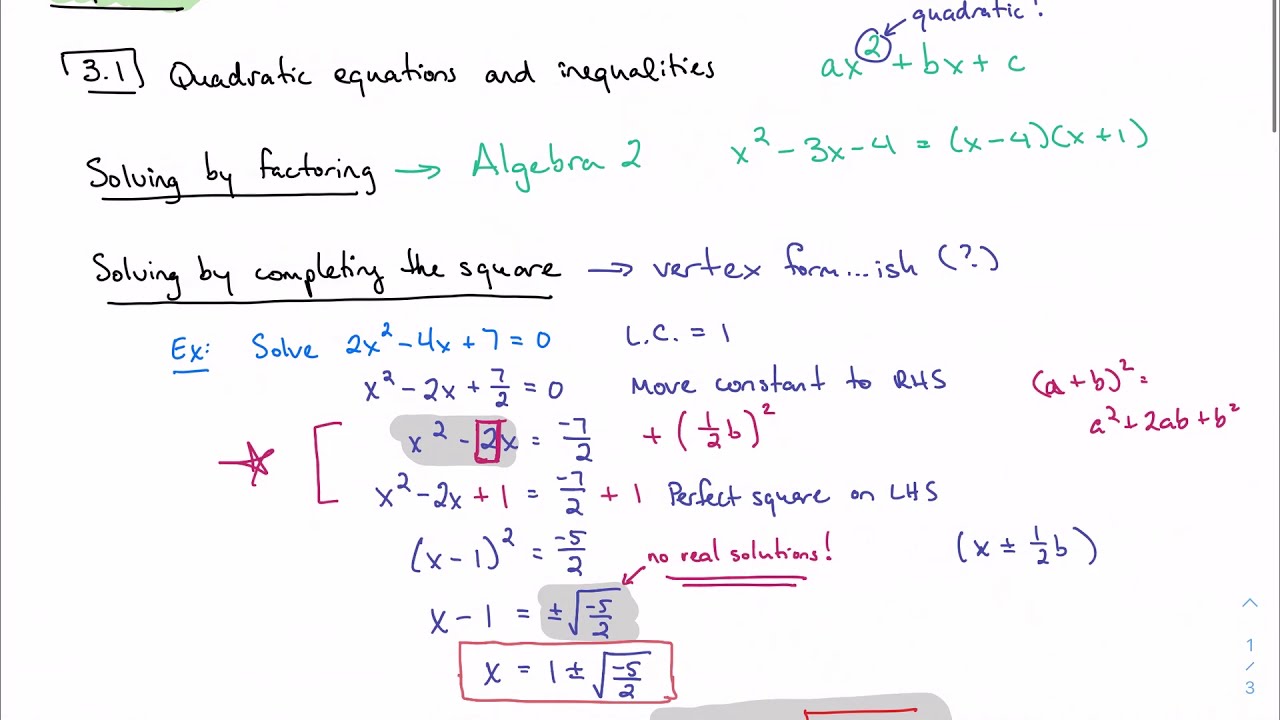 quadratic!
3.1 Quadratic equations and inequalities
ax² + bx + c
Solving by factoring → Algebra 2
x² - 3x - 4 = (x - 4)(x + 1)
Solving by completing the square → vertex form...ish (?)
Ex: Solve 2x² - 4x + 7 = 0
L.C. = 1
x² - 2x + 7/2 = 0
Move constant to RHS
(a + b)² =
a² + 2ab + b²
x² - 2x = -7/2
+ (1/2 b)²
x² - 2x + 1 = -7/2 + 1
Perfect square on LHS
(x - 1)² = -5/2
no real solutions!
(x ± 1/2 b)
x - 1 = ±√(-5/2)
x = 1 ± √(-5/2)
1
/
3